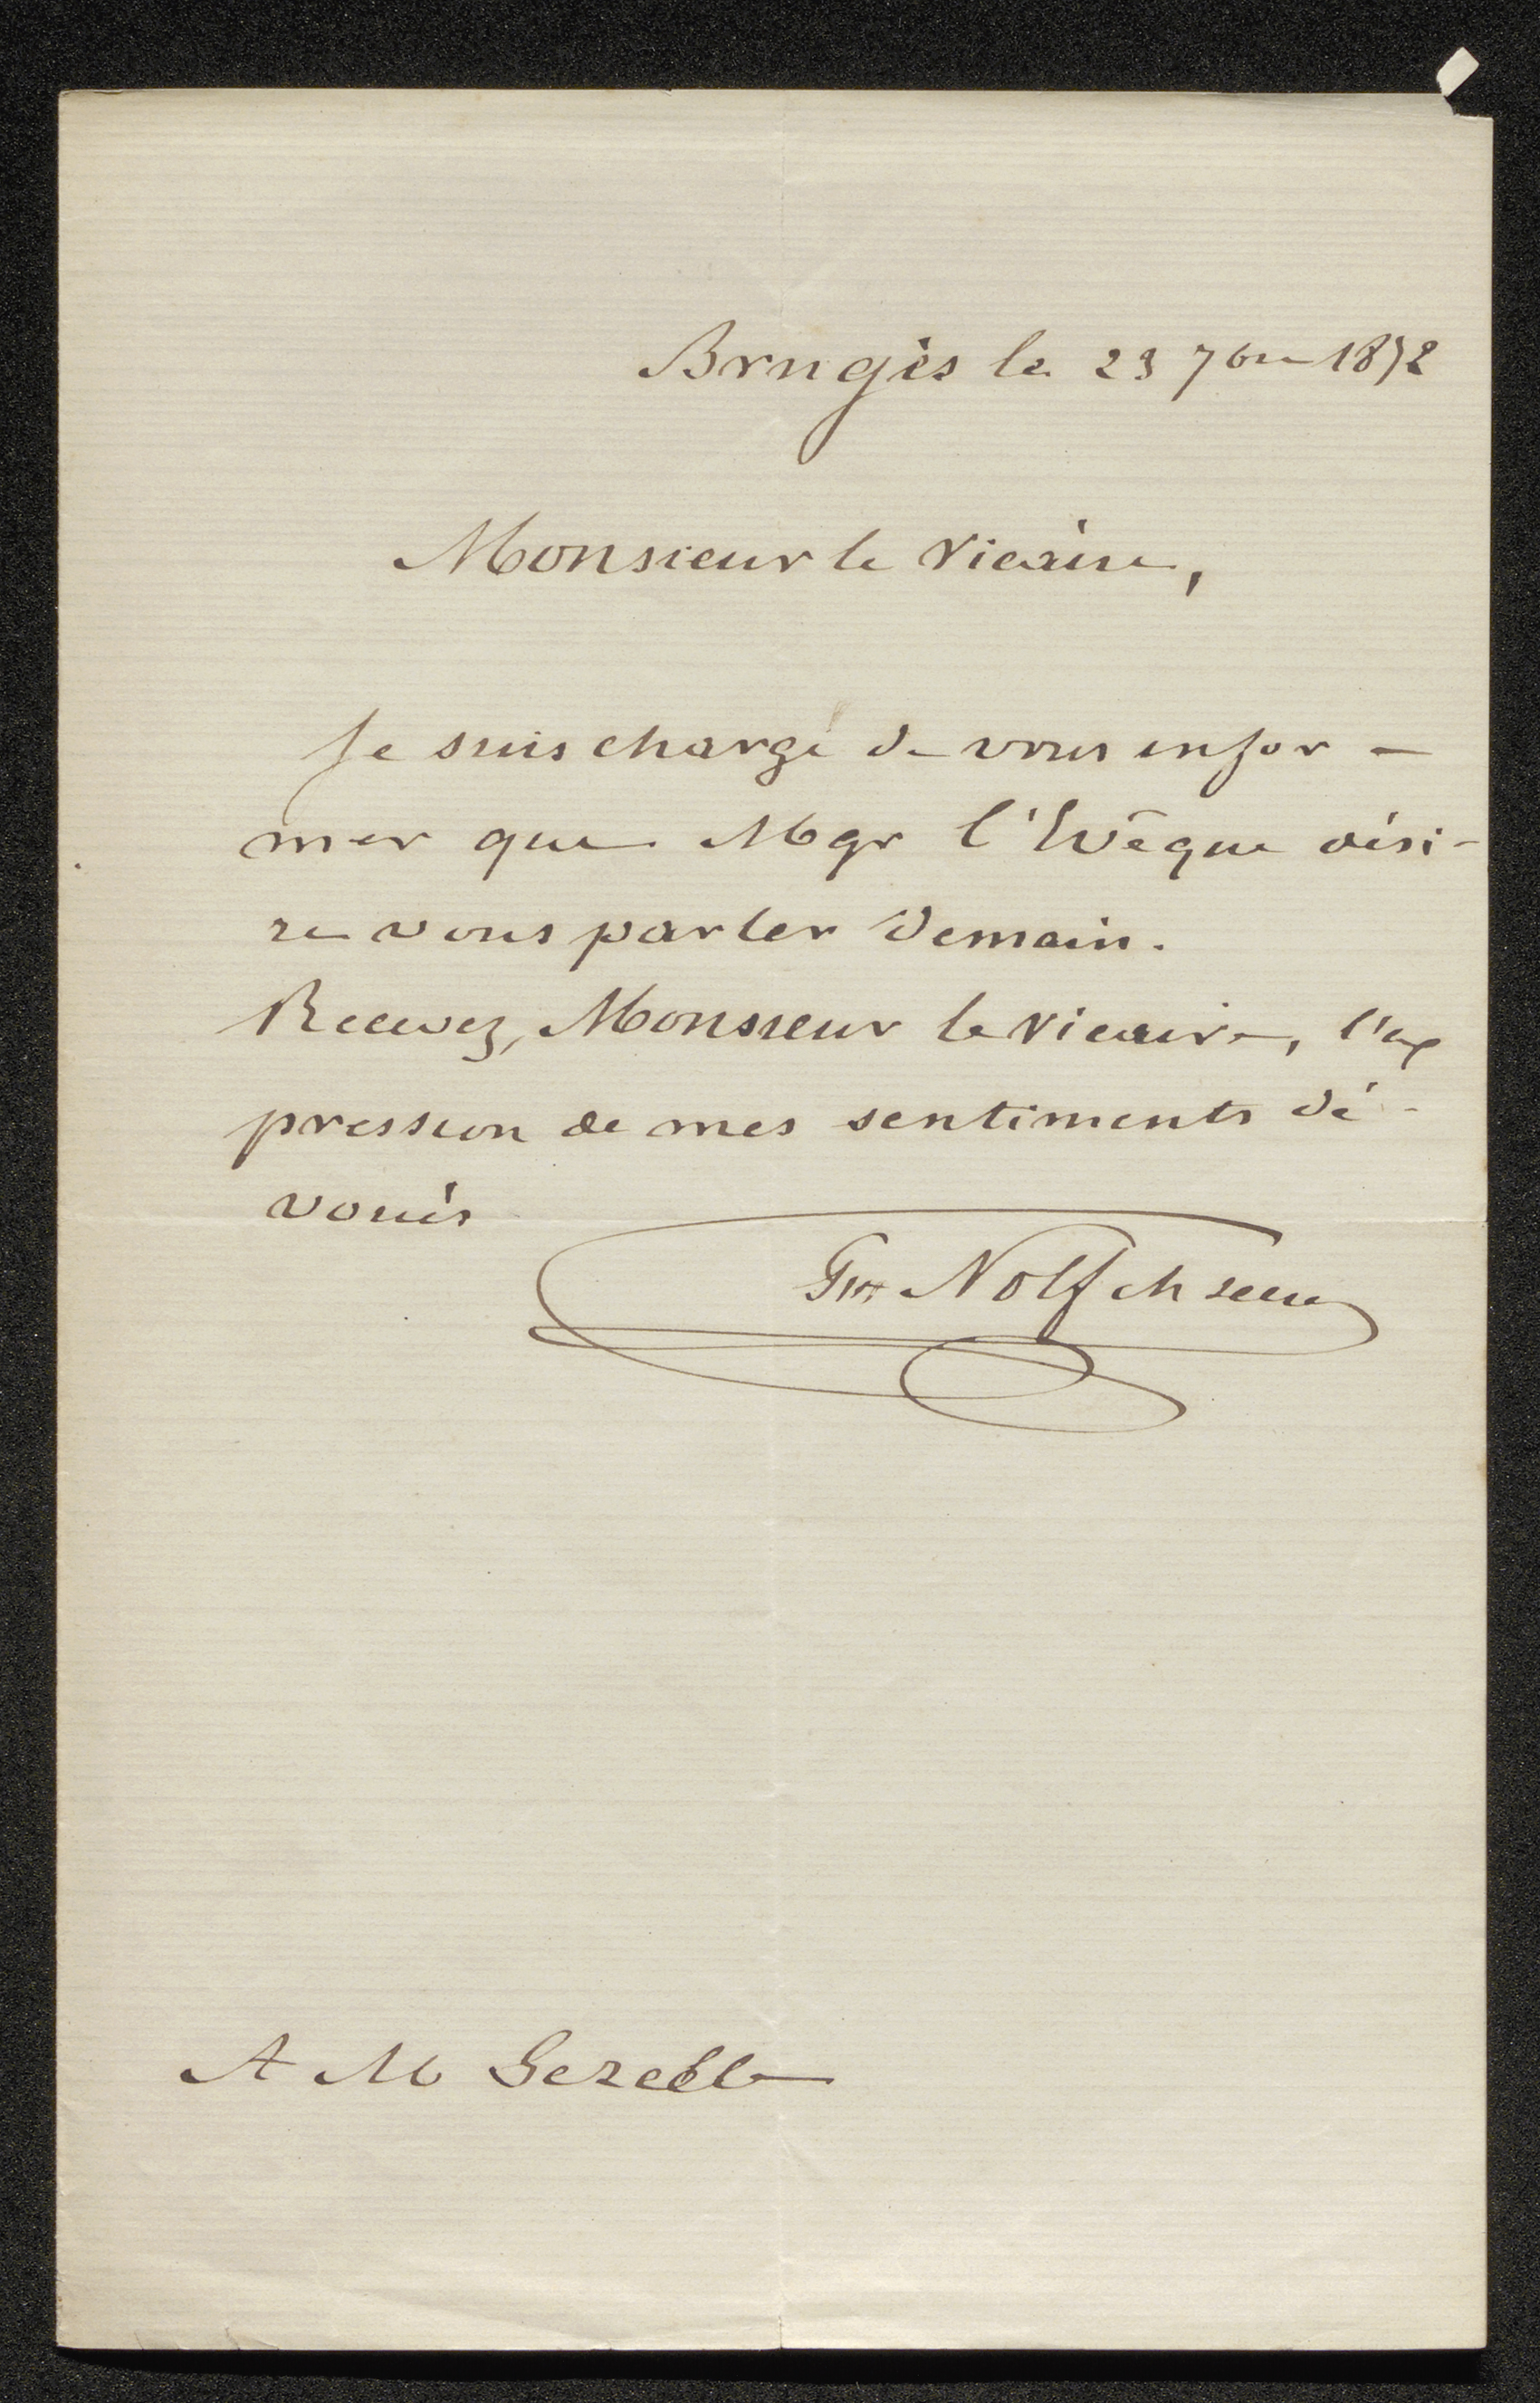 Bruges le 23 7bre 1872
Monsieur le Vicaire,
Je suis chargé de vous infor-
mer que Mgr l'Evêque dési-
re vous parler demain.
Recevez, Monsieur le Vicaire, l'ex
pression de mes sentiments dé-
voués
Nolf ch secr
A M Gezelle